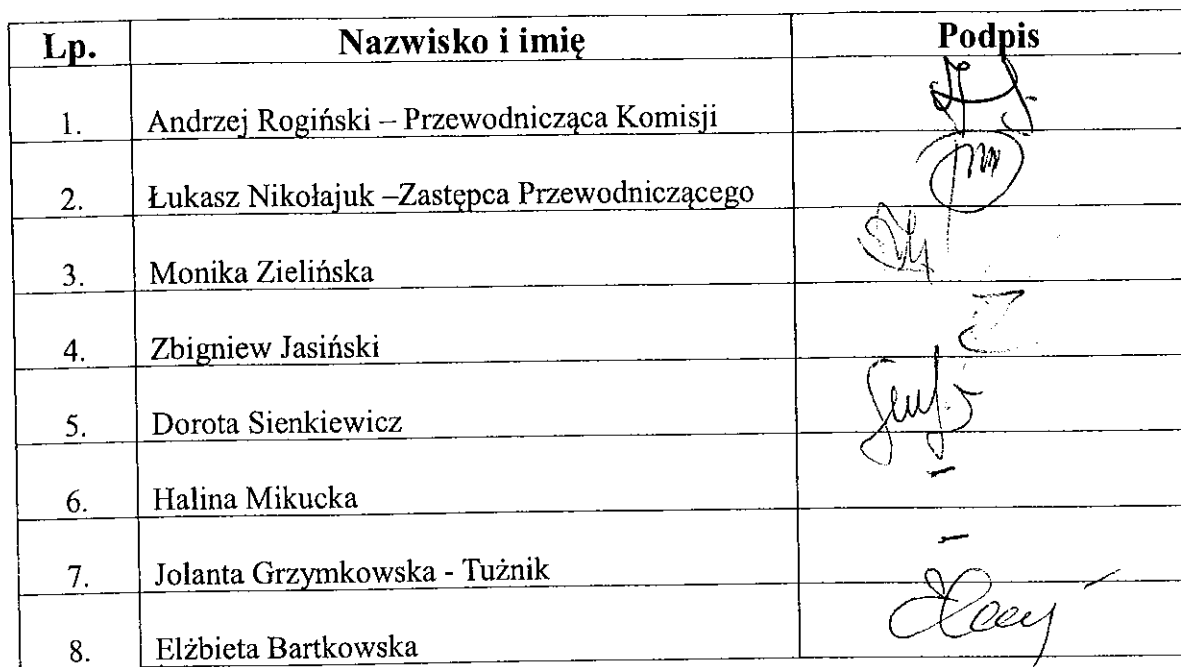 Lp. Nazwisko i imię Podpis
1. Andrzej Rogiński – Przewodnicząca Komisji
2. Łukasz Nikołajuk –Zastępca Przewodniczącego
3. Monika Zielińska
4. Zbigniew Jasiński
5. Dorota Sienkiewicz
6. Halina Mikucka -
7. Jolanta Grzymkowska - Tużnik -
8. Elżbieta Bartkowska